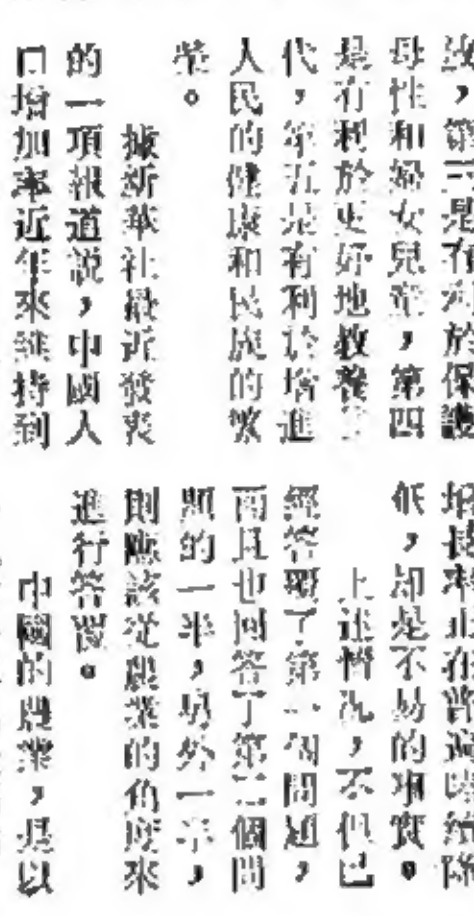 第三是有利於保護
母性和婦女兒童，第四
是有利於更好地教養
代，第五是有利於增進
人民的健康和民族的繁
榮。
據新華社最近發表
的一項報道說，中國人
口增加率近年來維持到
增長率正在普遍陸續降
低，却是不易的事實。
上述情況，不但已
經答覆了第一個問題，
而且也回答了第二個問
題的一半，另外一半，
則應該從農業的角度來
進行答覆。
中國的農業，是以